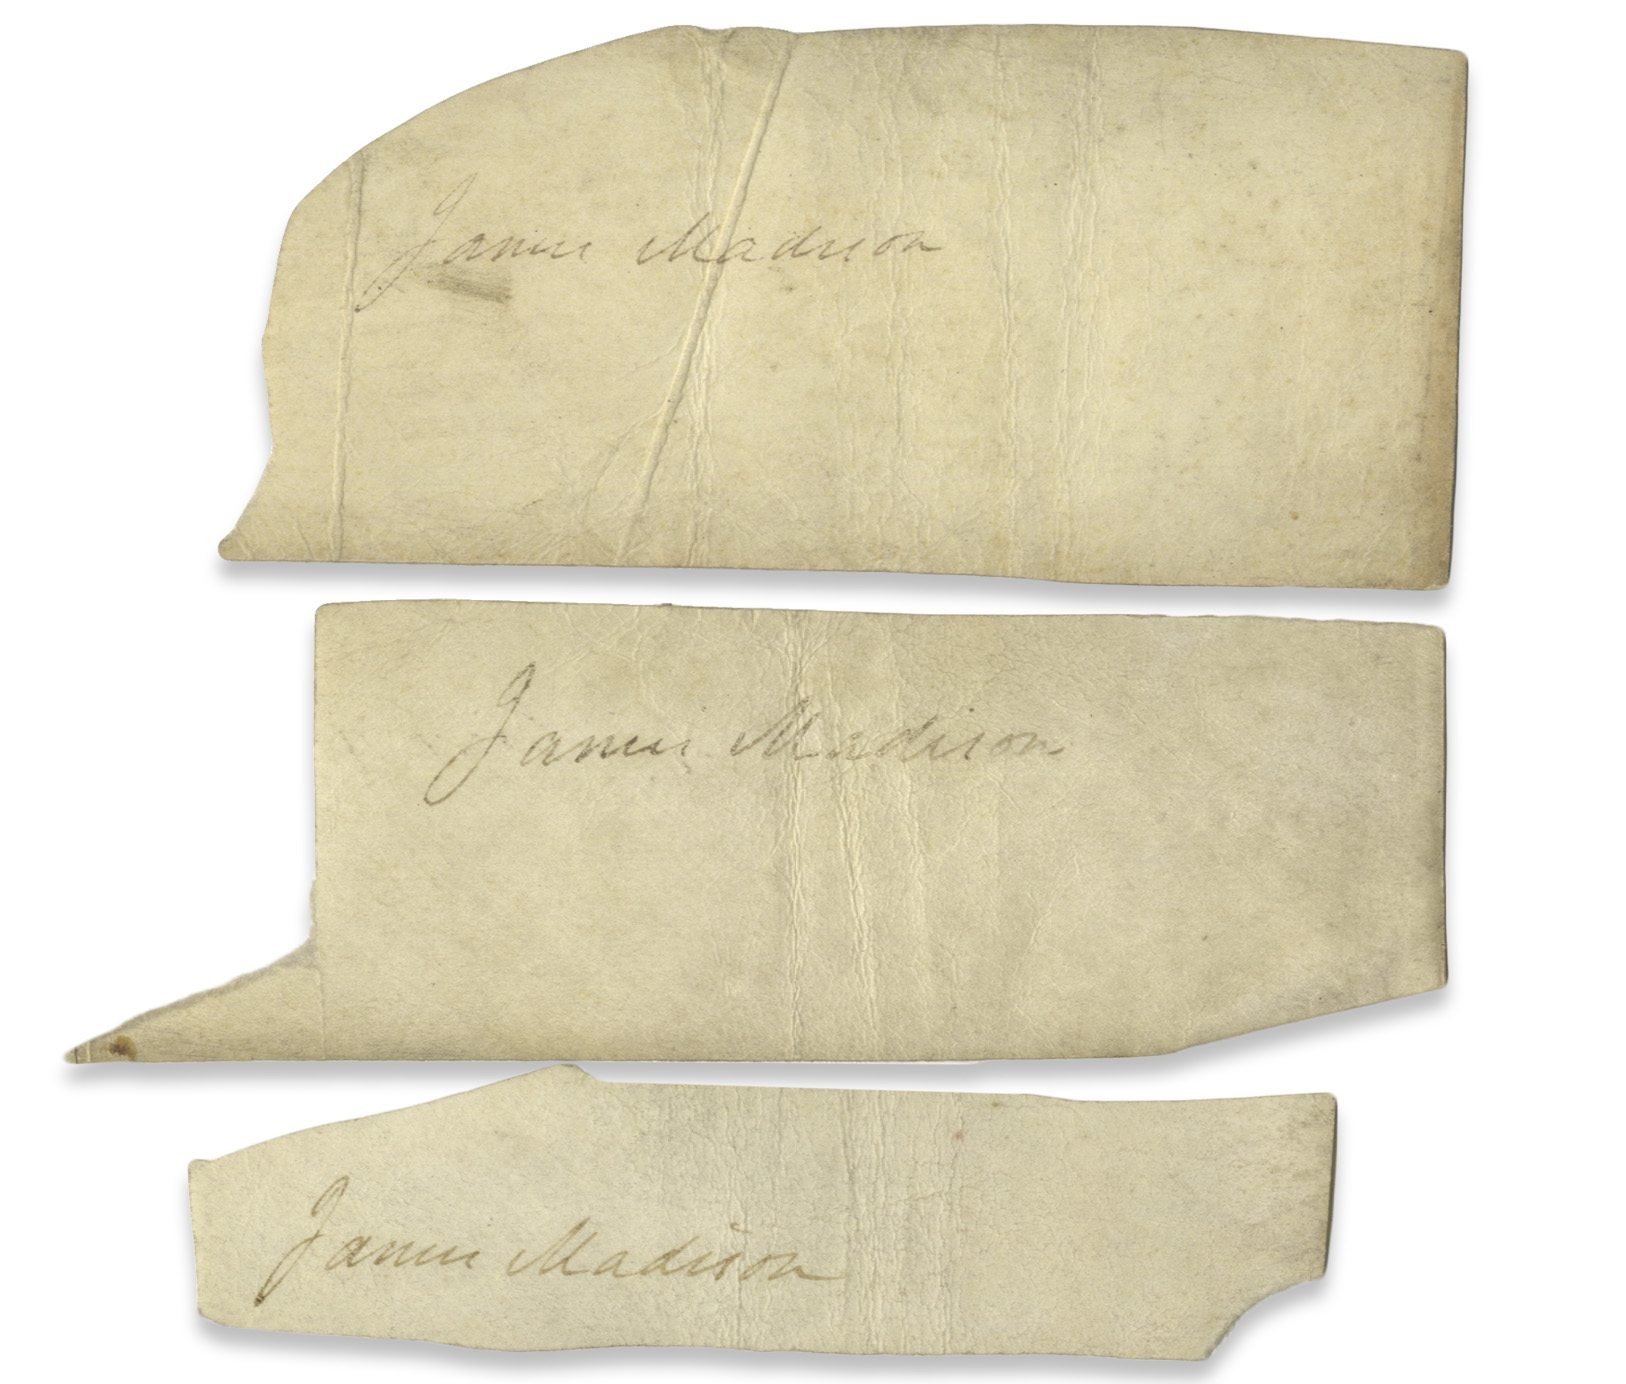 James Madison
James Madison
James Madison